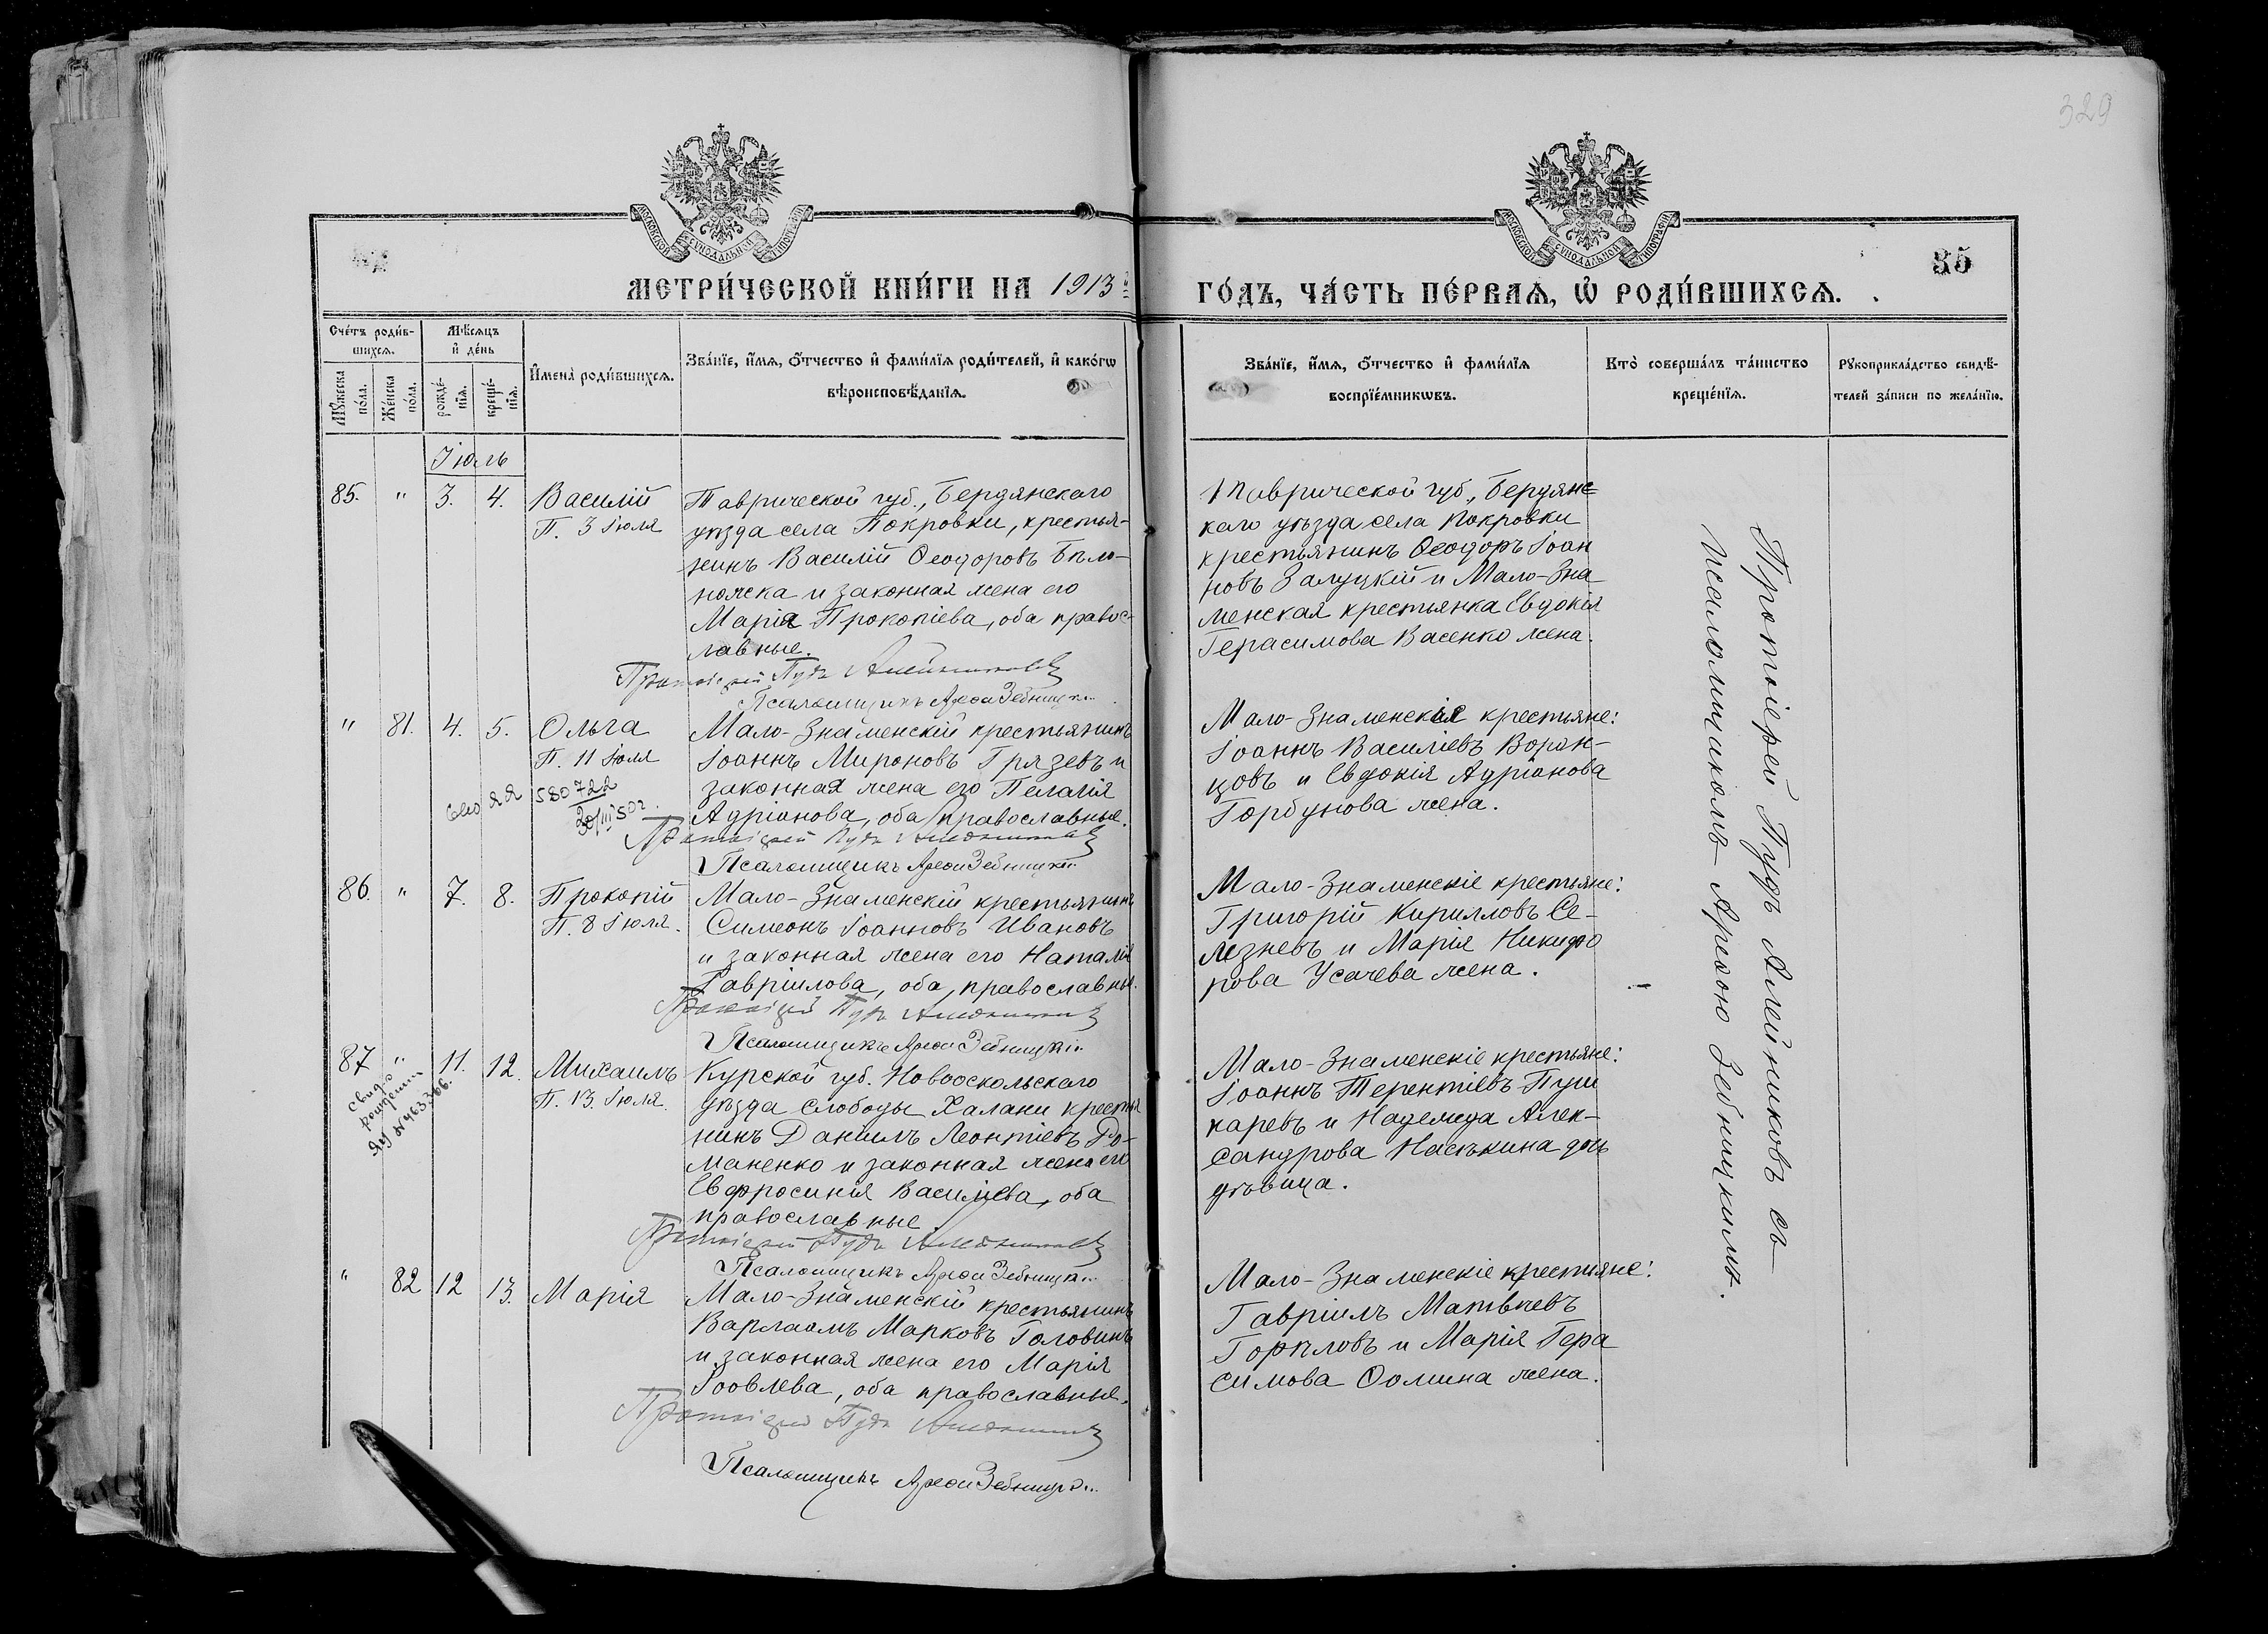 329
МОСКОВСКОЙ СѴНОДАЛЬНОЙ ТИПОГРАФІИ
МОСКОВСКОЙ СѴНОДАЛЬНОЙ ТИПОГРАФІИ
85
МЕТРИ́ЧЕСКОЙ КНИ́ГИ НА 1913 й
ГО́ДЪ, ЧА́СТЬ ПЕ́РВАѦ, Ѡ҆ РОДИ́ВШИХСѦ.
Сче́тъ роди́в-
шихсѧ.
Мꙋ́жеска по́ла.
Же́нска по́ла.
Мѣ́сѧцъ
и҆ де́нь
рожде́-
нїѧ.
креще́-
нїѧ.
И҆мена̀ роди́вшихсѧ.
Зва́нїе, и҆́мѧ, ѻ҆́тчество и҆ фами́лїѧ роди́телей, и҆ како́гѡ
вѣроисповѣ́данїѧ.
Зва́нїе, и҆́мѧ, ѻ҆́тчество и҆ фами́лїѧ
воспрїе́мникѡвъ.
Кто̀ соверша́лъ та́инство
креще́нїѧ.
Рꙋкоприкла́дство свидѣ́-
телей за́писи по жела́нїю.
Іюль
85. " 3. 4. Василій
П. 3 Іюля
Таврической губ., Бердянскаго
уѣзда села Покровки, крестья-
нинъ Василій Ѳеодоровъ Бѣло-
ножска и законная жена его
Марія Прокопіева, оба правос-
лавные.
Протоіерей Пудъ Алейниковъ
Псаломщикъ Арсеній Зебницкій
Таврической губ., Бердянс=
каго уѣзда села Покровки
крестьянинъ Ѳеодоръ Іоан
новъ Залуцкій и Мало-Зна
менская крестьянка Евдокія
Герасимова Васенко жена.
" 81. 4. 5. Ольга
П. 11 Іюля
580722
20/III 50г.
Мало-Знаменскій крестьянинъ
Іоаннъ Мироновъ Грязевъ и
законная жена его Пелагія
Адріанова, оба православные.
Протоіерей Пудъ Алейниковъ
Псаломщикъ Арсеній Зебницкій
Мало-Знаменскіе крестьяне:
Іоаннъ Василіевъ Ворон-
цовъ и Евдокія Адріанова
Горбунова жена.
86. " 7. 8. Прокопій
П. 8 Іюля.
Мало-Знаменскій крестьянинъ
Симеонъ Іоанновъ Ивановъ
и законная жена его Наталія
Гавріилова, оба, православные.
Протоіерей Пудъ Алейниковъ
Псаломщикъ Арсеній Зебницкій
Мало-Знаменскіе крестьяне:
Григорій Кирилловъ Се-
лезневъ и Марія Никифо
рова Усачева жена.
87 " 11. 12. Михаилъ
П. 13. Іюля.
свид. о
рождении
№463366.
Курской губ. Новооскольскаго
уѣзда Слободы Халани крестья
нинъ Даніилъ Леонтіевъ Ро-
маненко и законная жена его
Евфросинія Василіева, оба
православные
Протоіерей Пудъ Алейниковъ
Псаломщикъ Арсеній Зебницкій
Мало-Знаменскіе крестьяне:
Іоаннъ Терентіевъ Пуш
каревъ и Надежда Алек-
сандрова Насѣкина дочь
дѣвица.
" 82 12 13. Марія
Мало-Знаменскій крестьянинъ
Варлаамъ Марковъ Головинъ
и законная жена его Марія
Іоовлева, оба православные.
Протоіерей Пудъ Алейниковъ
Псаломщикъ Арсеній Зебницкій
Мало-Знаменскіе крестьяне:
Гавріилъ Матвѣевъ
Горѣловъ и Марія Гера
симова Ѳомина жена.
Протоіерей Пудъ Алейниковъ съ
псаломщикомъ Арсеніемъ Зебницкимъ.